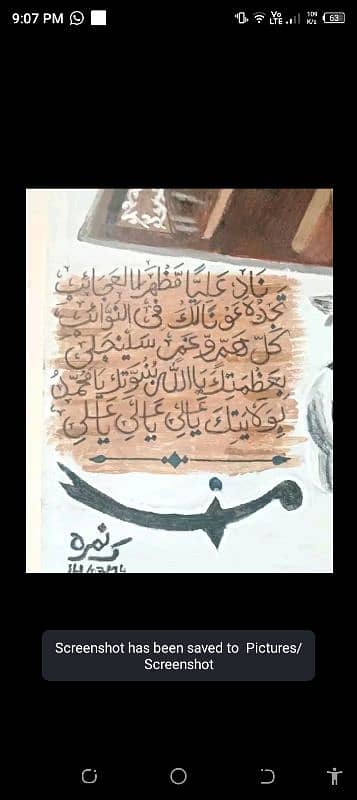 9:07 PM
Vo LTE
109 K/s
63
نَادِ عَلِيًّا مَّظْهَرَ الْعَجَائِبِ
تَجِدْهُ عَوْنًا لَكَ فِي النَّوَائِبِ
كُلُّ هَمٍّ وَّغَمٍّ سَيَنْجَلِي
بِعَظْمَتِكَ يَا اللّٰهُ بِنُبُوَّتِكَ يَا مُحَمَّدُ
بِوَلَايَتِكَ يَا عَلِيُّ يَا عَلِيُّ يَا عَلِيُّ
نمره
Screenshot has been saved to Pictures/
Screenshot